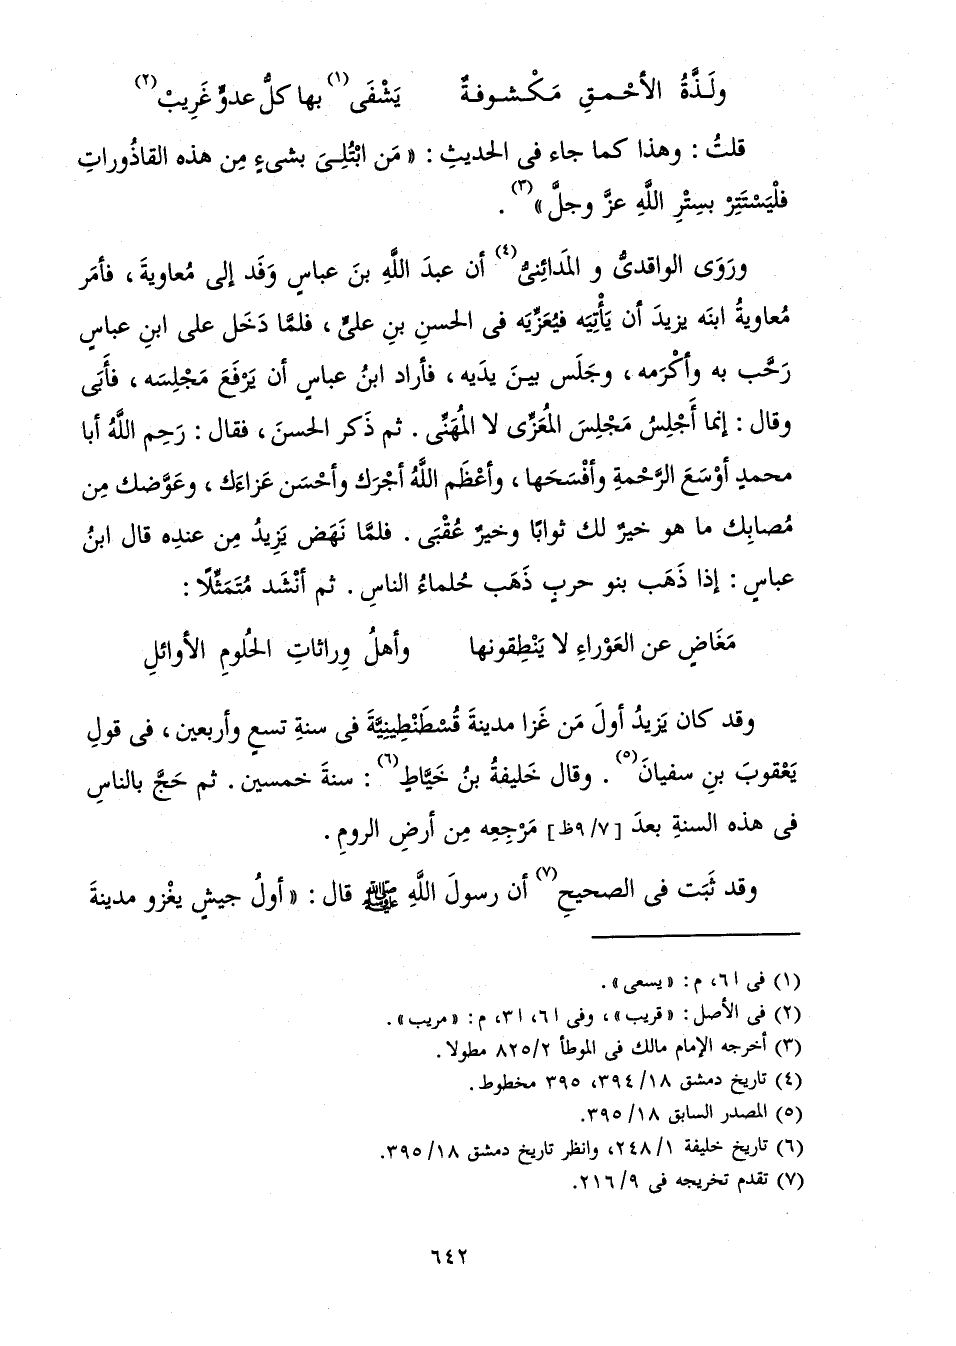 ولَذَّةُ الأحْمقِ مَكْشوفةٌ يَشْفَى(١) بها كلُّ عدوٍّ غَرِيبْ(٢)
قلتُ : وهذا كما جاء فى الحديثِ : « مَن ابْتُلِىَ بشىءٍ مِن هذه القاذُوراتِ
فلْيَسْتَتِرْ بسِتْرِ اللَّهِ عزَّ وجلَّ »(٣) .
ورَوَى الواقدىُّ و المَدائِنىُّ(٤) أن عبدَ اللَّهِ بنَ عباسٍ وَفَد إلى مُعاويةَ ، فأمَر
مُعاويةُ ابنَه يزيدَ أن يَأْتِيَه فيُعَزِّيَه فى الحسنِ بنِ علىٍّ ، فلمَّا دَخَل على ابنِ عباسٍ
رَحَّب به وأكْرَمه ، وجَلَس بينَ يدَيه ، فأراد ابنُ عباسٍ أن يَرْفَعَ مَجْلِسَه ، فأَبَى
وقال : إنما أَجْلِسُ مَجْلِسَ المُعَزِّى لا المُهَنِّى . ثم ذَكَر الحسنَ ، فقال : رَحِم اللَّهُ أبا
محمدٍ أوْسَعَ الرَّحْمةِ وأفْسَحَها ، وأعْظَم اللَّهُ أجْرَك وأحْسَن عَزاءَك ، وعَوَّضك مِن
مُصابِك ما هو خيرٌ لك ثوابًا وخيرٌ عُقْبَى . فلمَّا نَهَض يَزِيدُ مِن عندِه قال ابنُ
عباسٍ : إذا ذَهَب بنو حربٍ ذَهَب حُلماءُ الناسِ . ثم أنْشَد مُتَمَثِّلًا :
مَغَاضٍ عن العَوْراءِ لا يَنْطِقونها وأهلُ وِراثاتِ الحُلومِ الأوائلِ
وقد كان يَزِيدُ أولَ مَن غَزا مدينةَ قُسْطَنْطِينِيَّةَ فى سنةِ تسعٍ وأربعين ، فى قولِ
يَعْقوبَ بنِ سفيانَ(٥) . وقال خَليفةُ بنُ خَيَّاطٍ(٦) : سنةَ خمسين . ثم حَجَّ بالناسِ
فى هذه السنةِ بعدَ [٩/٧ظ] مَرْجِعِه مِن أرضِ الرومِ .
وقد ثَبَت فى الصحيحِ(٧) أن رسولَ اللَّهِ ﷺ قال : « أولُ جيشٍ يغْزو مدينةَ
(١) فى ا ٦، م : « يسعى » .
(٢) فى الأصل : « قريب » ، وفى ا ٦، ا ٣، م : « مريب » .
(٣) أخرجه الإمام مالك فى الموطأ ٨٢٥/٢ مطولا .
(٤) تاريخ دمشق ١٨/ ٣٩٤، ٣٩٥ مخطوط .
(٥) المصدر السابق ١٨/ ٣٩٥.
(٦) تاريخ خليفة ١/ ٢٤٨، وانظر تاريخ دمشق ١٨/ ٣٩٥.
(٧) تقدم تخريجه فى ٩/ ٢١٦.
٦٤٢